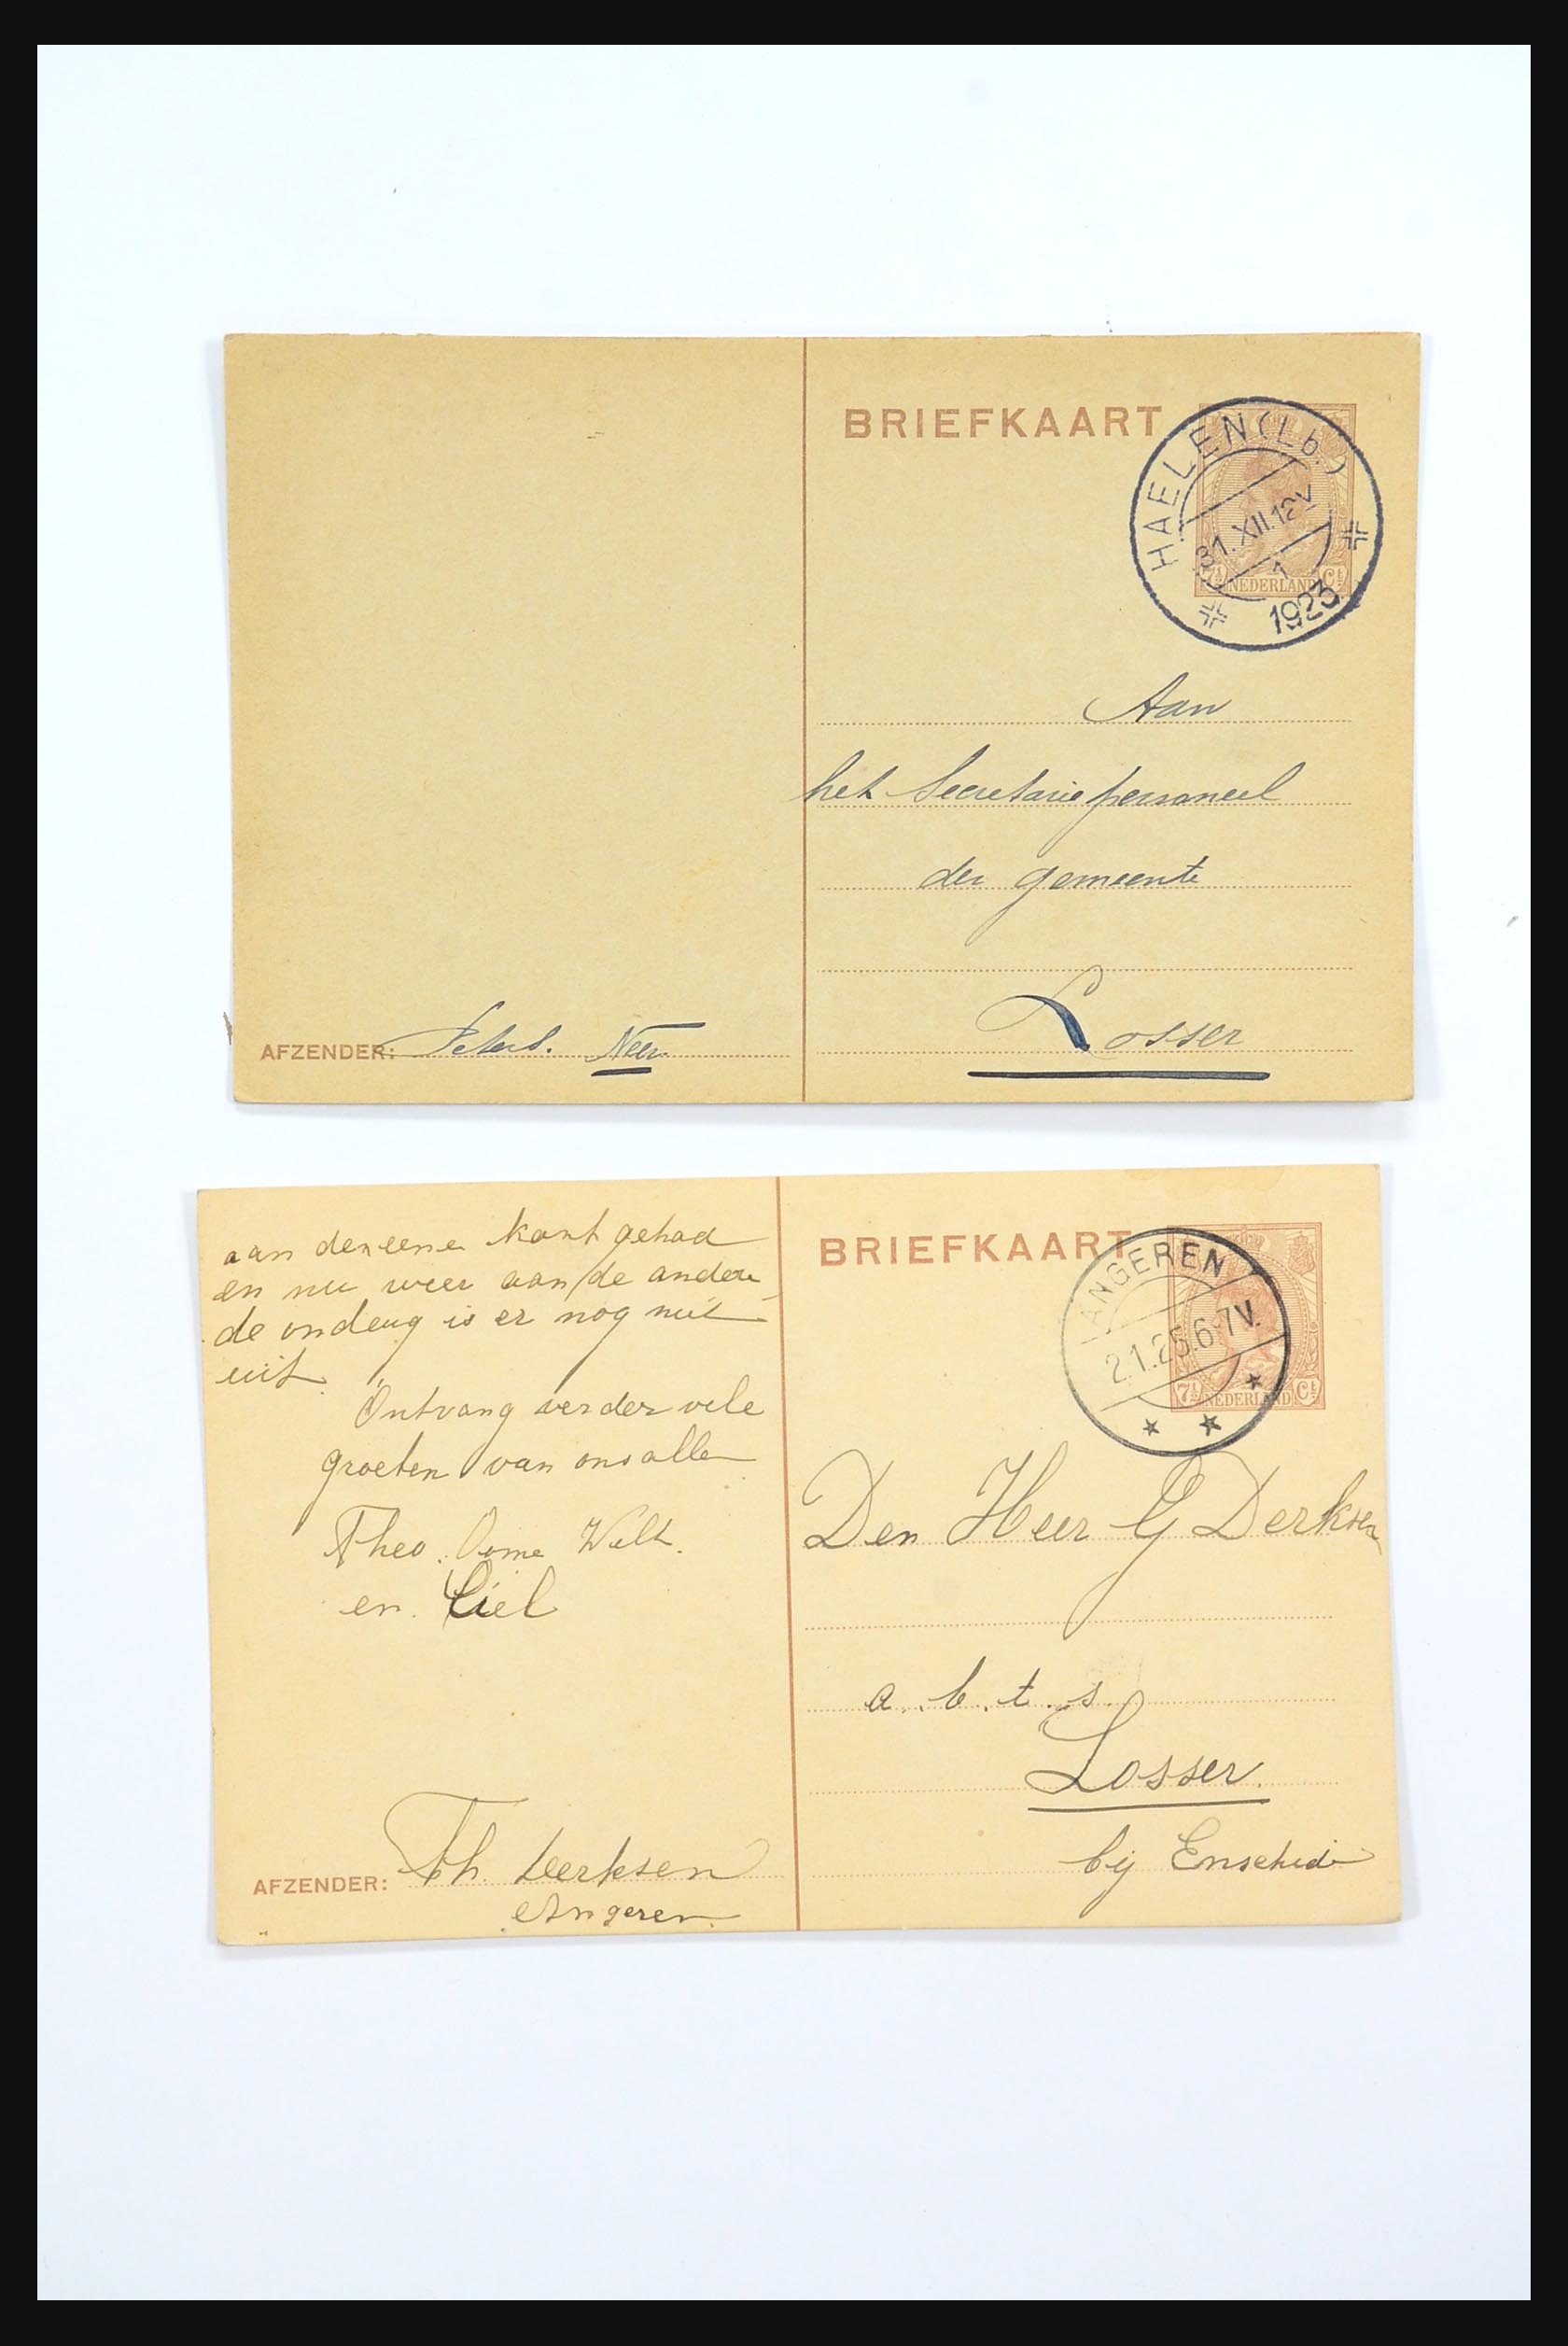 BRIEFKAART
HAELEN (Lb.)
31.XII.12V
1
1923
7½ NEDERLAND Ct
Aan
het Secretarie personeel
der gemeente
Losser
AFZENDER: Peters. Neer.
aan den eene kant gehad
en nu weer aan de andere
de ondeug is er nog niet
uit.
Ontvang verder vele
groeten van ons allen
Theo. Oome Will.
en Ciel
AFZENDER: Th. Derksen
Angeren.
BRIEFKAART
ANGEREN
2.1.25.6-7V.
7½ NEDERLAND Ct
Den Heer G Derksen
a.b.t.s.
Losser.
bij Enschede